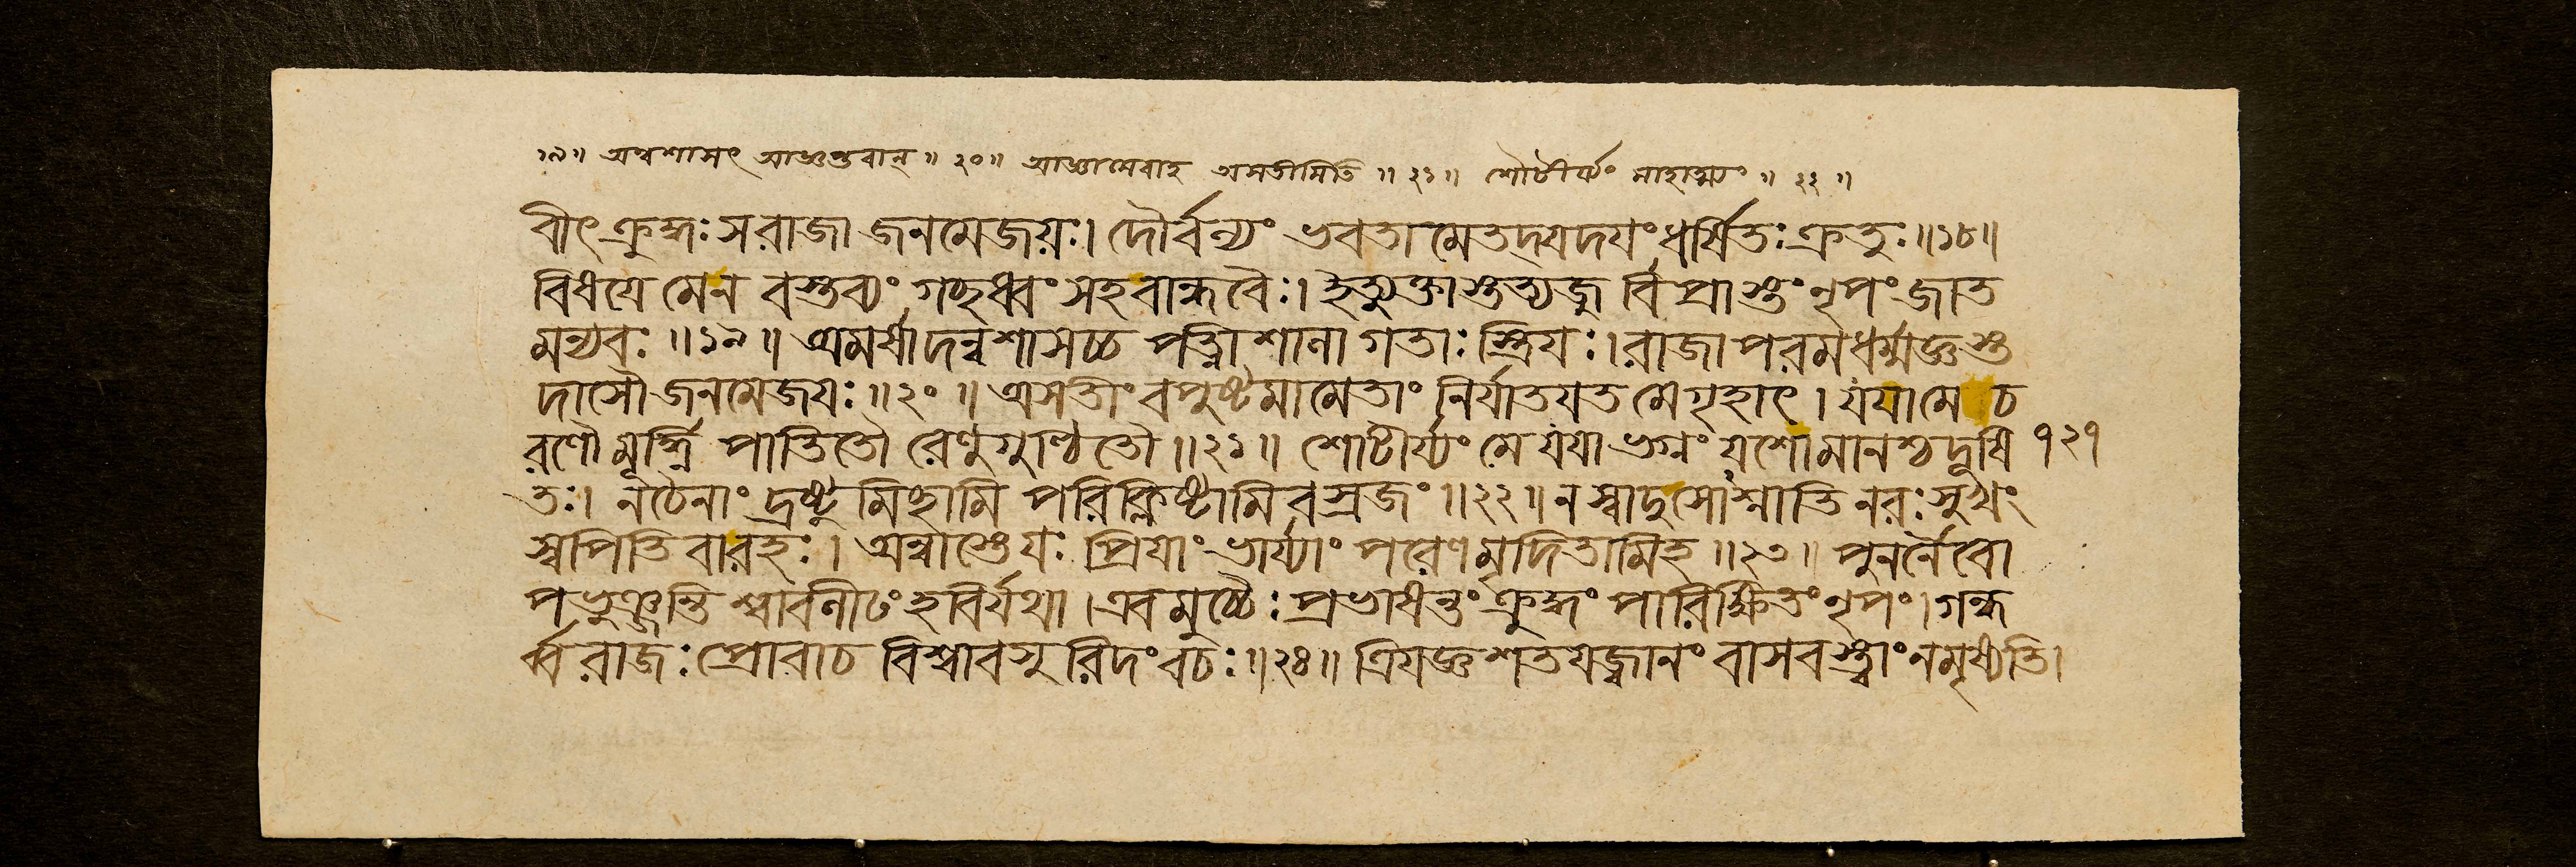 ১৯॥ অন্বশাসৎ আজ্ঞপ্তবান্ ॥ ২০॥ আজ্ঞামেবাহ অসতীমিতি ॥ ২১॥ শৌটীর্য্যং মাহাত্ম্যং ॥ ২২॥
বীৎ ক্রুদ্ধঃ স রাজা জনমেজয়ঃ। দৌর্ব্বল্যং ভবতা মেতদ্যদয়ং ধর্ষিতঃ ক্রতুঃ ॥১৮॥
বিষয়ে মে ন বস্তব্যং গচ্ছধ্বং সহ বান্ধবৈঃ। ইত্যুক্তাস্তত্যজু র্বিপ্রাস্তং নৃপং জাত
মন্যবঃ ॥১৯॥ অমর্ষাদন্বশাসচ্চ পত্নীশালা গতাঃ স্ত্রিয়ঃ। রাজা পরমধর্ম্মজ্ঞস্ত
দাসৌ জনমেজয়ঃ ॥২০॥ অসতীং বপুষ্টমামেতাং নির্যাতয়ত মে গৃহাৎ। যয়া মে চ
রণৌ মূর্দ্ধ্নি পাতিতৌ রেণুগুণ্ঠিতৌ ॥২১॥ শৌটীর্য্যং মে যয়া ভগ্নং যশো মানশ্চ দূষি ১২১
তঃ। ন চৈনাং দ্রষ্টুমিচ্ছামি পরিক্লিষ্টামিব স্রজং ॥২২॥ ন স্বাদু সোশ্নাতি নরঃ সুখং
স্বপিতি বা রহঃ। অন্বাস্তে যঃ প্রিয়াং ভার্য্যাং পরেণ মৃদিতামিহ ॥২৩॥ পুনর্নৈবো
পভুঞ্জন্তি শ্বাবলীঢং হবির্যথা। এবমুচ্চৈঃ প্রভাষন্তং ক্রুদ্ধং পারিক্ষিতং নৃপং। গন্ধ
র্ব্বরাজঃ প্রোবাচ বিশ্বাবসুরিদং বচঃ ॥২৪॥ ত্রিযজ্ঞশতযজ্বানং বাসবস্ত্বাং ন মৃষ্যতি।